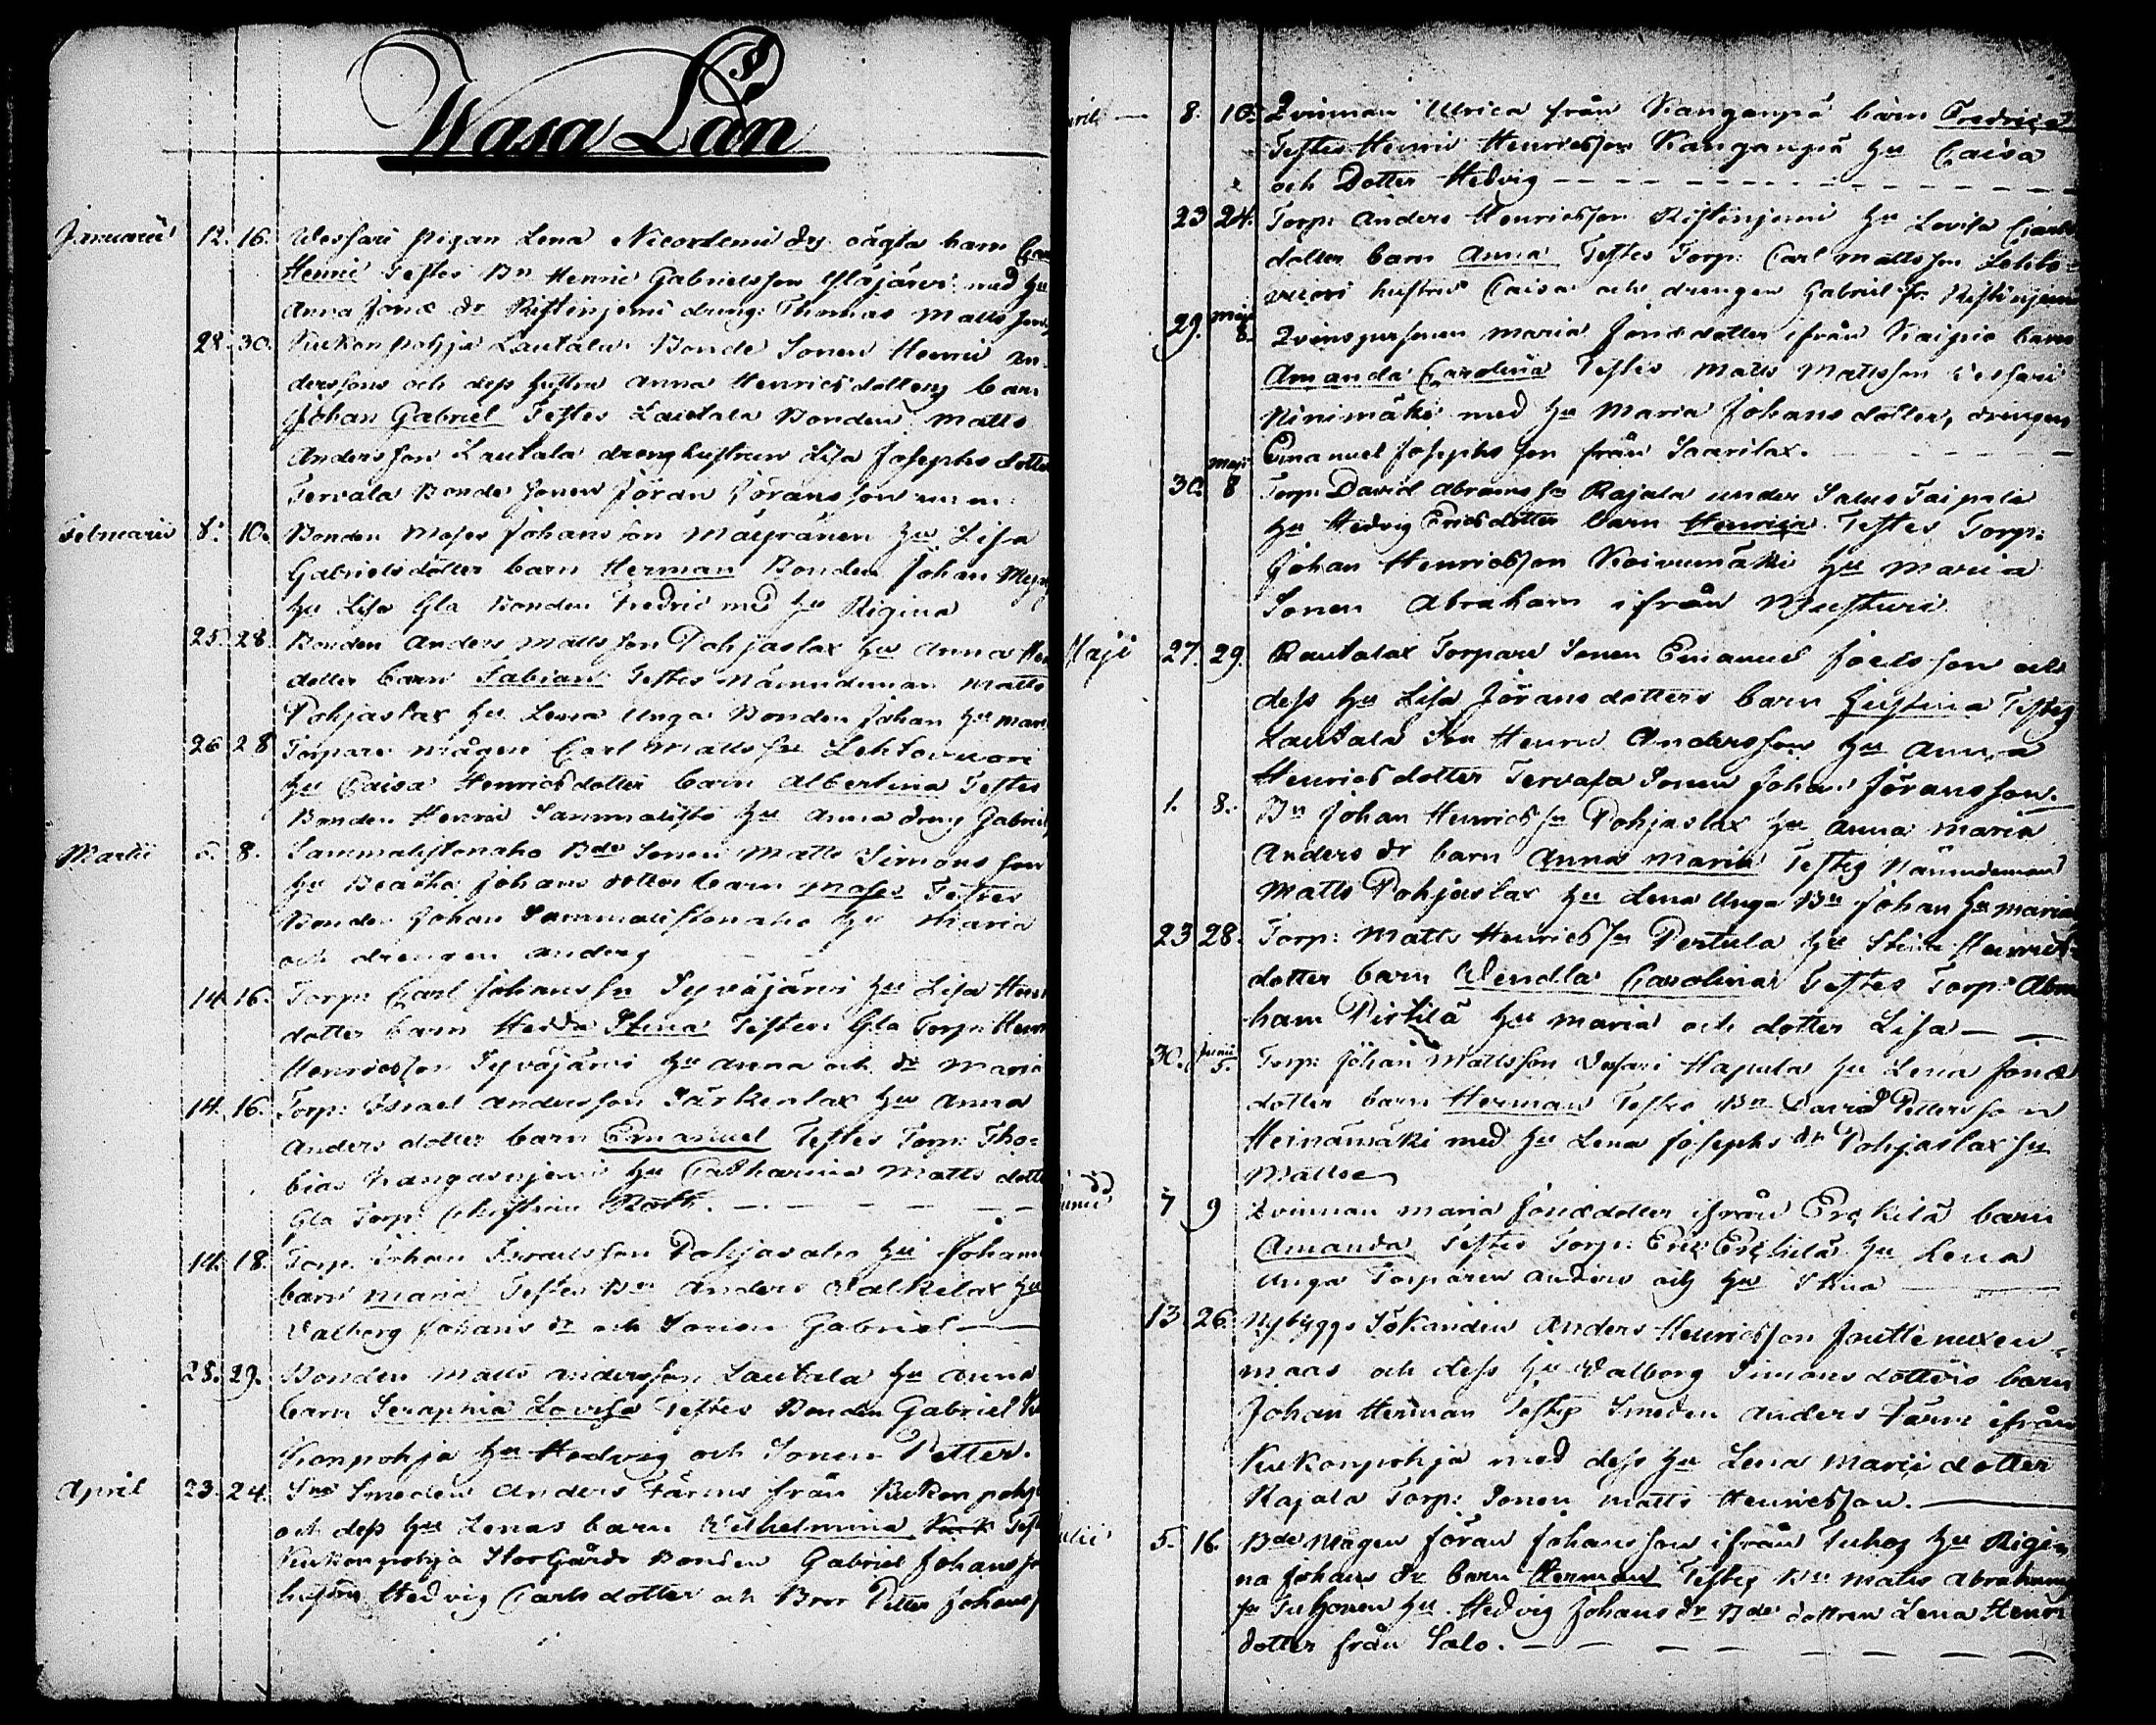 Wasa Län
Januarii 12. 16. Wessari pigan Lena Nicodemi drs oägta barn
Henric Testes Bn Henric Gabrielsson med Hu
Anna Jonæ dr Ristinjemi dräng: Thomas Mattsson
28. 30. Kukonpohja Lautala Bonde Sonen Henric An-
derssons och dess hustru Anna Henricsdotters barn
Johan Gabriel Testes Lautala Bonden Matts
Andersson Lautala dränghustrun Lisa Josephsdotter
Tervala Bonde Sonen Jöran Jöransson
Februarii 8. 10. Bonden Moses Johansson Mäyränen Hu Lisa
Gabrielsdotter barn Herman Bonden Johan
Hu Lisa Gla Bonden Fredric med Hu Rigina
25. 28. Bonden Anders Mattsson Pohjaslax Hu Anna
dotter barn Fabian Testes Nämndeman Matts
Pohjaslax Hu Lena Unga Bonden Johan Hu Mari
26 28 Torpare mågen Carl Mattsson Lehtovuori
Hu Caisa Henricsdotter barn Albertina Testes
Bonden Henric Sammalisto Hu Anna dreng Gabriel
Martii 5. 8. Sammalistonaho Bde Sonen Matts Simonsson
Hu Beata Johans dotter barn Moses Testes
Bonden Johan Sammalistonaho Hu Maria
och drengen Anders
14. 16. Torp: Carl Johansson Syväjärvi Hu Lisa Hen
dotter barn Hedda Stina Testes Gla Torp: Hen
Henricsson Syväjärvi Hu Anna och dr Maria
14. 16. Torp: Israel Andersson Särkenlax Hu Anna
Anders dotter barn Emanuel Testes Torp: Tho-
bias Kangasnjemi Hu Catharina Matts dott
Gla Torp: Christian Roth.
14. 18. Torp. Johan Israelsson Pohjasaho Hu Johan
barn Maria Testes Bn Anders Valkilax Hu
Valborg Johans dr och Sonen Gabriel
28. 29. Bonden Matts Andersson Lautala Hu Anna
barn Seraphia Lovisa Testes Bonden Gabriel
Konpohja Hu Hedvig och Sonen Petter.
April 23. 24. Smeden Anders Färms från Kukonpohj
och dess Hu Lenas barn Wilhelmina Test
Kukonpohja StorGårds Bonden Gabriel Johansson
hustru Hedvig Carlsdotter och Bror Petter Johanss
8. 10. Qvinnan Ulrica från Kanganpä barn Fredrica
Testes Henric Henricsson Kanganpä Hu Caisa
och Dotter Hedvig
23 24. Torp: Anders Henricsson Ristinjemi Hu Lovisa Carls
dotter barn Anna Testes Torp: Carl Mattsson Lehto-
vuori hustrun Caisa och drengen Gabriel fr. Ristinjemi
29. Maji 8. Qvinspersonen Maria Jonædotter ifrån Kaipio barn
Amanda Carolina Testes Matts Mattsson Vessari
Ninimäki med Hu Maria Johansdotter, drengen
Emanuel Josephsson från Saarilax.
30. Maji 8 Torp: David Abramsson Rajala under Salus Taipale
Hu Hedvig Ericsdotter barn Henrica Testes Torp:
Johan Henricsson Koivumäki Hu Maria
Sonen Abraham ifrån Musturi
Maji 27. 29. Rautalax Torpare Sonen Emanuel Joelsson och
dess Hu Lisa Jöransdotters barn Justina Testes
Lautala Henric Andersson Hu Anna
Henricsdotter Tervala Sonen Johan Jöransson.
1. 8. Bn Johan Henricsson Pohjaslax Hu Anna Maria
Anders dr barn Anna Maria Testes Nämndeman
Matts Pohjaslax Hu Lena Unga Bn Johan Hu Maria
23 28. Torp: Matts Henricsson Pertula Hu Stina Henrics-
dotter barn Wendla Carolina Testes Torp: Abra
ham Pirtilä Hu Maria och dotter Lisa
30. Junii 5. Torp: Johan Mattsson Vesari Hapula Hu Lena Jonæ
dotter barn Herman Testes Bn David Pettersson
Heinämäki med Hu Lena Josephs dr Pohjaslax
Junii 7 9 Qvinnan Maria Jonædotter ifrån Erckilä barn
Amanda Testes Torp: Eric Erckilä Hu Lena
Unga Torparen Anders och Hu Stina
13. 26. Nybygge Sökanden Anders Henricsson
maas och dess Hu Valborg Simonsdotters barn
Johan Herman Testes Smeden Anders Färm ifrån
Kukonpohja med dess Hu Lena Mariæ dotter
Rajala Torp: Sonen Matts Henricsson.
Julii 5. 16. Bde Mågen Jöran Johansson ifrån Hu Rigi
na Johans dr barn Herman Testes Bn Matts Abrahams
sn Tuhonen Hu Hedvig Johans dr Bde dottren Lena Henri
dotter från Salo.